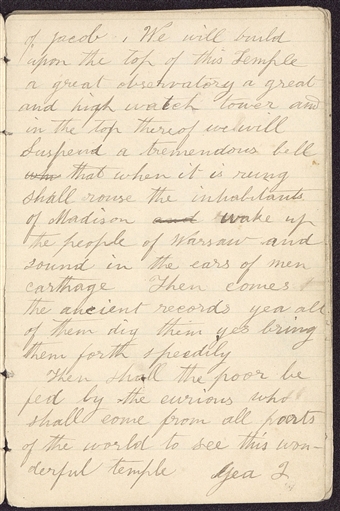 of Jacob, We will build
upon the top of this Temple
a great observatory a great
and high watch tower and
in the top thereof we will
Suspend a tremendous bell
that when it is rung
shall rouse the inhabitants
of Madison and wake up
the people of Warsaw and
sound in the ears of men
carthage Then comes
the ancient records yea all
of them dig them yes bring
them forth speedily
Then shall the poor be
fed by the curious who
shall come from all parts
of the world to see this won-
derful temple Yea I